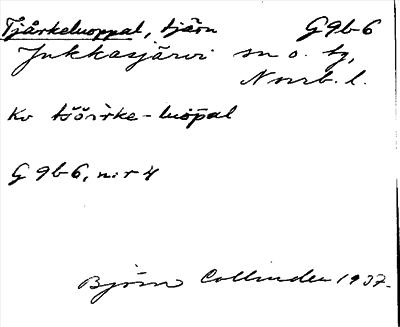 Tjårkeluoppal, tjärn G9b-6
Jukkasjärvi sn o. tg,
Norrb. l.
Kv tšōrke-luopal
G 9b-6, n:r 4
Björn Collinder 1937.